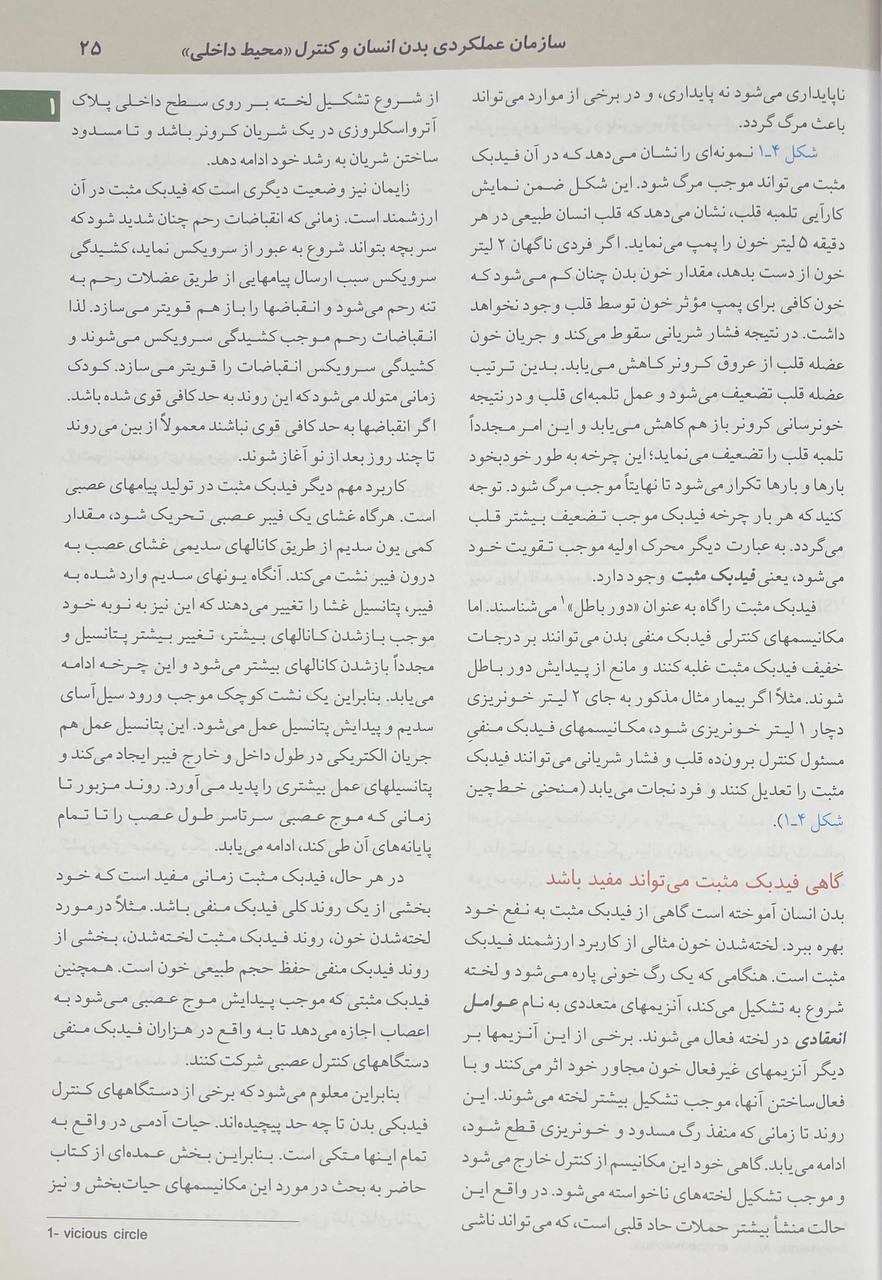 سازمان عملکردی بدن انسان و کنترل «محیط داخلی»
۲۵
۱
ناپایداری می‌شود نه پایداری، و در برخی از موارد می‌تواند
باعث مرگ گردد.
شکل ۴ـ۱ نمونه‌ای را نشان می‌دهد که در آن فیدبک
مثبت می‌تواند موجب مرگ شود. این شکل ضمن نمایش
کارآیی تلمبه قلب، نشان می‌دهد که قلب انسان طبیعی در هر
دقیقه ۵ لیتر خون را پمپ می‌نماید. اگر فردی ناگهان ۲ لیتر
خون از دست بدهد، مقدار خون بدن چنان کم می‌شود که
خون کافی برای پمپ مؤثر خون توسط قلب وجود نخواهد
داشت. در نتیجه فشار شریانی سقوط می‌کند و جریان خون
عضله قلب از عروق کرونر کاهش می‌یابد. بدین ترتیب
عضله قلب تضعیف می‌شود و عمل تلمبه‌ای قلب و در نتیجه
خونرسانی کرونر باز هم کاهش می‌یابد و این امر مجدداً
تلمبه قلب را تضعیف می‌نماید؛ این چرخه به طور خودبخود
بارها و بارها تکرار می‌شود تا نهایتاً موجب مرگ شود. توجه
کنید که هر بار چرخه فیدبک موجب تضعیف بیشتر قلب
می‌گردد. به عبارت دیگر محرک اولیه موجب تقویت خود
می‌شود، یعنی فیدبک مثبت وجود دارد.
فیدبک مثبت را گاه به عنوان «دور باطل»۱ می‌شناسند. اما
مکانیسمهای کنترلی فیدبک منفی بدن می‌توانند بر درجات
خفیف فیدبک مثبت غلبه کنند و مانع از پیدایش دور باطل
شوند. مثلاً اگر بیمار مثال مذکور به جای ۲ لیتر خونریزی
دچار ۱ لیتر خونریزی شود، مکانیسمهای فیدبک منفیِ
مسئول کنترل برون‌ده قلب و فشار شریانی می‌توانند فیدبک
مثبت را تعدیل کنند و فرد نجات می‌یابد (منحنی خط‌چین
شکل ۴ـ۱).
گاهی فیدبک مثبت می‌تواند مفید باشد
بدن انسان آموخته است گاهی از فیدبک مثبت به نفع خود
بهره ببرد. لخته‌شدن خون مثالی از کاربرد ارزشمند فیدبک
مثبت است. هنگامی که یک رگ خونی پاره می‌شود و لخته
شروع به تشکیل می‌کند، آنزیمهای متعددی به نام عوامل
انعقادی در لخته فعال می‌شوند. برخی از این آنزیمها بر
دیگر آنزیمهای غیرفعال خون مجاور خود اثر می‌کنند و با
فعال‌ساختن آنها، موجب تشکیل بیشتر لخته می‌شوند. این
روند تا زمانی که منفذ رگ مسدود و خونریزی قطع شود،
ادامه می‌یابد. گاهی خود این مکانیسم از کنترل خارج می‌شود
و موجب تشکیل لخته‌های ناخواسته می‌شود. در واقع این
حالت منشأ بیشتر حملات حاد قلبی است، که می‌تواند ناشی
از شروع تشکیل لخته بر روی سطح داخلی پلاک
آترواسکلروزی در یک شریان کرونر باشد و تا مسدود
ساختن شریان به رشد خود ادامه دهد.
زایمان نیز وضعیت دیگری است که فیدبک مثبت در آن
ارزشمند است. زمانی که انقباضات رحم چنان شدید شود که
سر بچه بتواند شروع به عبور از سرویکس نماید، کشیدگی
سرویکس سبب ارسال پیامهایی از طریق عضلات رحم به
تنه رحم می‌شود و انقباضها را باز هم قویتر می‌سازد. لذا
انقباضات رحم موجب کشیدگی سرویکس می‌شوند و
کشیدگی سرویکس انقباضات را قویتر می‌سازد. کودک
زمانی متولد می‌شود که این روند به حد کافی قوی شده باشد.
اگر انقباضها به حد کافی قوی نباشند معمولاً از بین می‌روند
تا چند روز بعد از نو آغاز شوند.
کاربرد مهم دیگر فیدبک مثبت در تولید پیامهای عصبی
است. هرگاه غشای یک فیبر عصبی تحریک شود، مقدار
کمی یون سدیم از طریق کانالهای سدیمی غشای عصب به
درون فیبر نشت می‌کند. آنگاه یونهای سدیم وارد شده به
فیبر، پتانسیل غشا را تغییر می‌دهند که این نیز به نوبه خود
موجب بازشدن کانالهای بیشتر، تغییر بیشتر پتانسیل و
مجدداً بازشدن کانالهای بیشتر می‌شود و این چرخه ادامه
می‌یابد. بنابراین یک نشت کوچک موجب ورود سیل‌آسای
سدیم و پیدایش پتانسیل عمل می‌شود. این پتانسیل عمل هم
جریان الکتریکی در طول داخل و خارج فیبر ایجاد می‌کند و
پتانسیلهای عمل بیشتری را پدید می‌آورد. روند مزبور تا
زمانی که موج عصبی سرتاسر طول عصب را تا تمام
پایانه‌های آن طی کند، ادامه می‌یابد.
در هر حال، فیدبک مثبت زمانی مفید است که خود
بخشی از یک روند کلی فیدبک منفی باشد. مثلاً در مورد
لخته‌شدن خون، روند فیدبک مثبت لخته‌شدن، بخشی از
روند فیدبک منفی حفظ حجم طبیعی خون است. همچنین
فیدبک مثبتی که موجب پیدایش موج عصبی می‌شود به
اعصاب اجازه می‌دهد تا به واقع در هزاران فیدبک منفی
دستگاههای کنترل عصبی شرکت کنند.
بنابراین معلوم می‌شود که برخی از دستگاههای کنترل
فیدبکی بدن تا چه حد پیچیده‌اند. حیات آدمی در واقع به
تمام اینها متکی است. بنابراین بخش عمده‌ای از کتاب
حاضر به بحث در مورد این مکانیسمهای حیات‌بخش و نیز
1- vicious circle